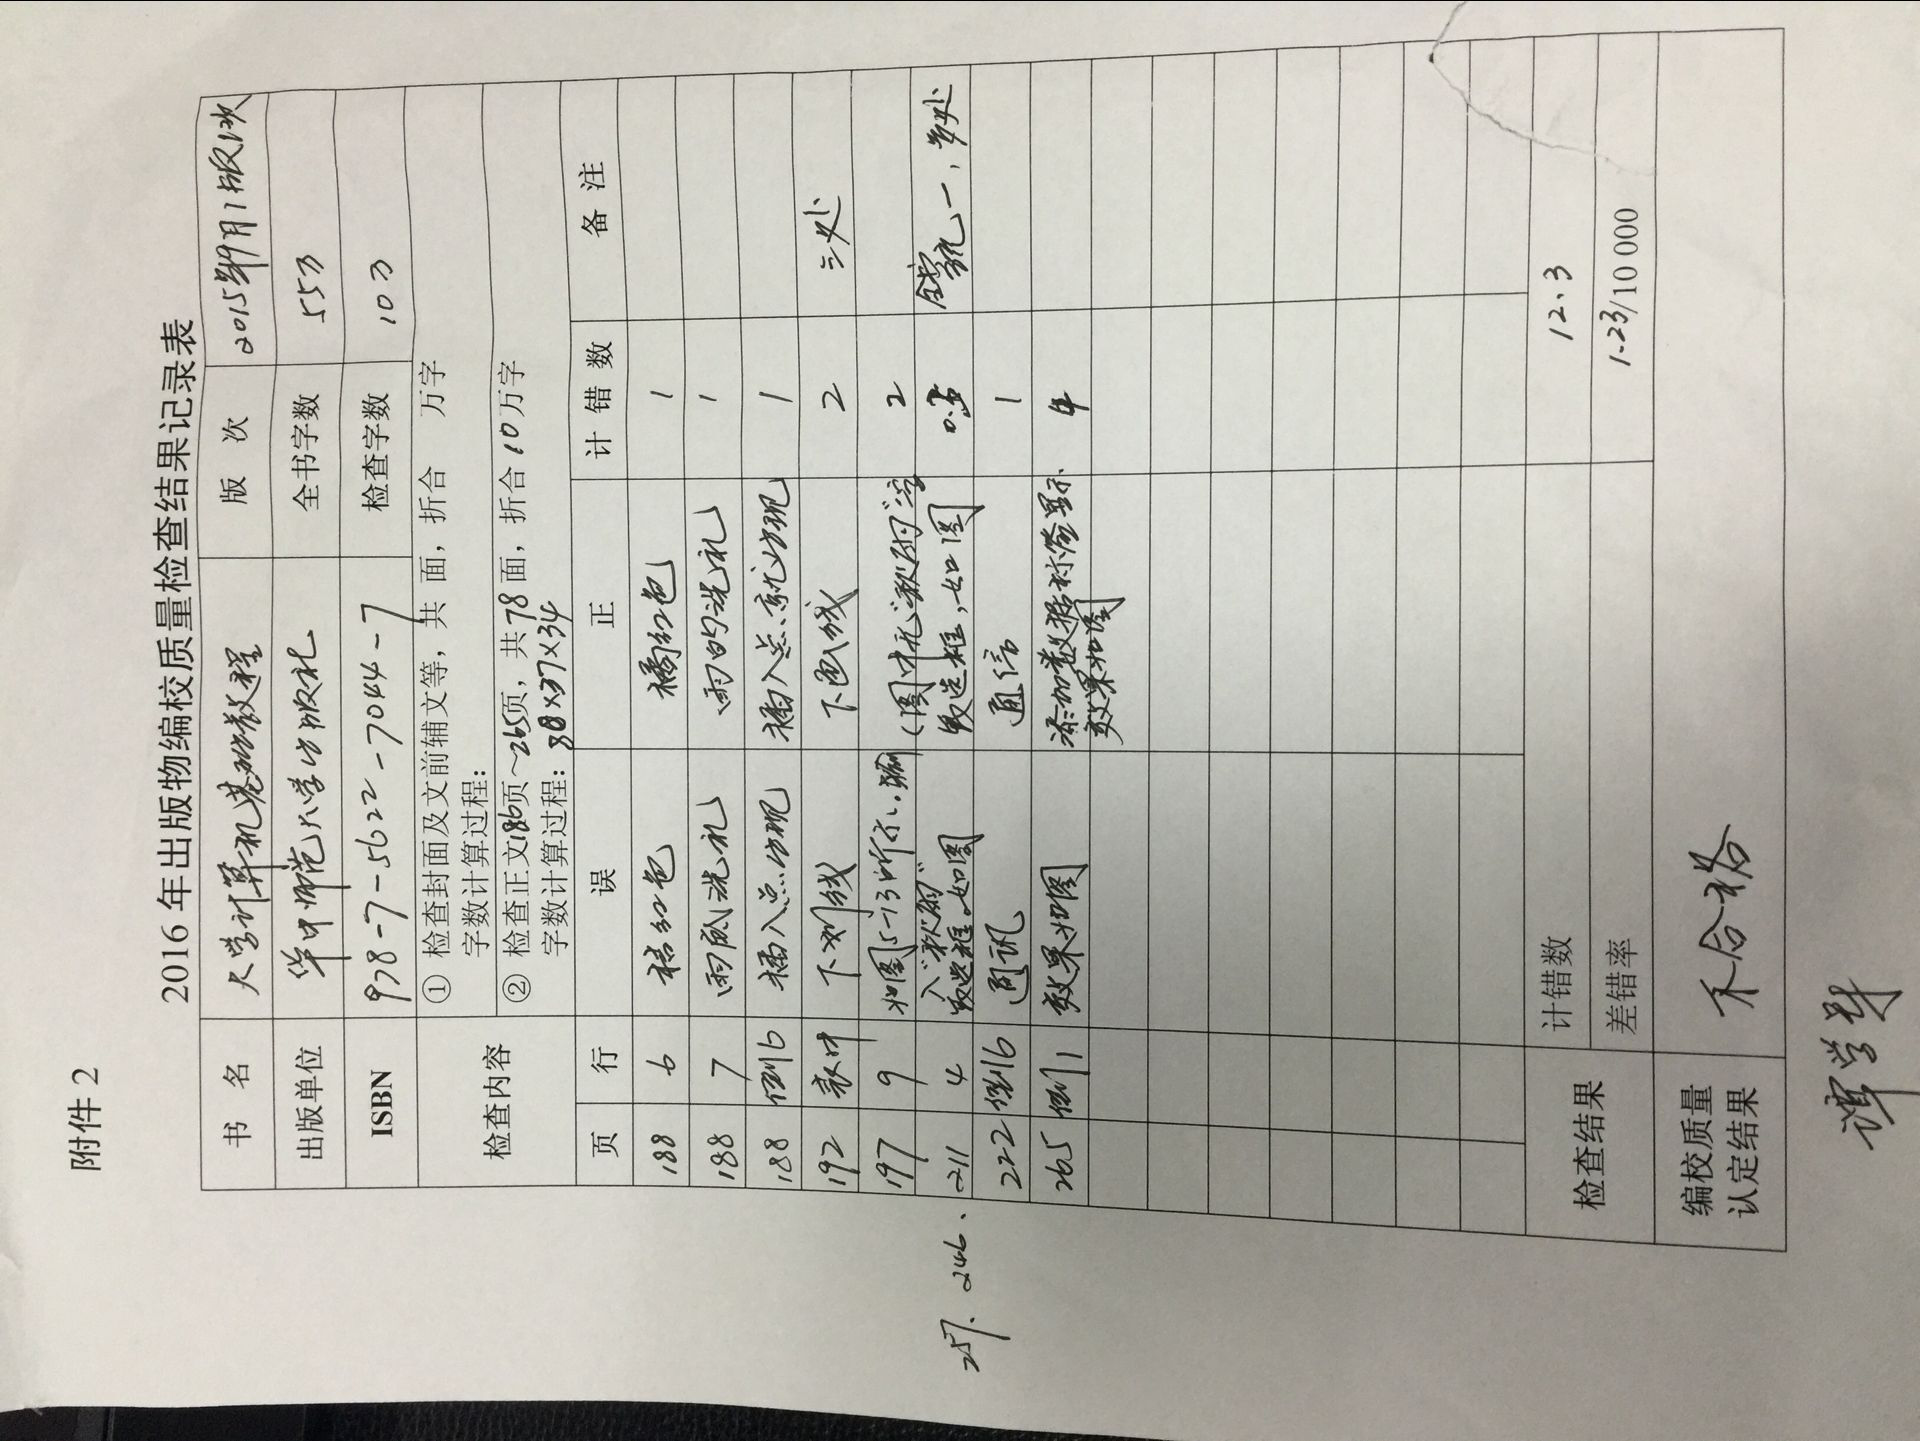 附件 2
2016 年出版物编校质量检查结果记录表
书 名 大学计算机基础教程 版 次 2015年9月1版1次
出版单位 华中师范大学出版社 全书字数 553
ISBN 978-7-5622-7044-7 检查字数 103
检查内容 ① 检查封面及文前辅文等，共 面，折合 万字
字数计算过程：
② 检查正文186页～265页，共78面，折合10万字
字数计算过程：80×37×34
页 行 误 正 计错数 备注
188 6 桔红色 橘红色 1
188 7 雨的洗礼 1
188 倒16 插入点出现 插入点就出现 1
192 表中 下划线 下画线 2 三处
197 9 如图5-13所示，输 (图中无"秋雨"字 2
257、246、211 4 复选框。如图 复选框，如图 0.5 全书统一，多处
222 倒16 通讯 通信 1
265 倒1 效果如图 添加数据标签显示 4
效果如图
检查结果 计错数 12.3
差错率 1.23/10 000
编校质量
认定结果 不合格
谭学军